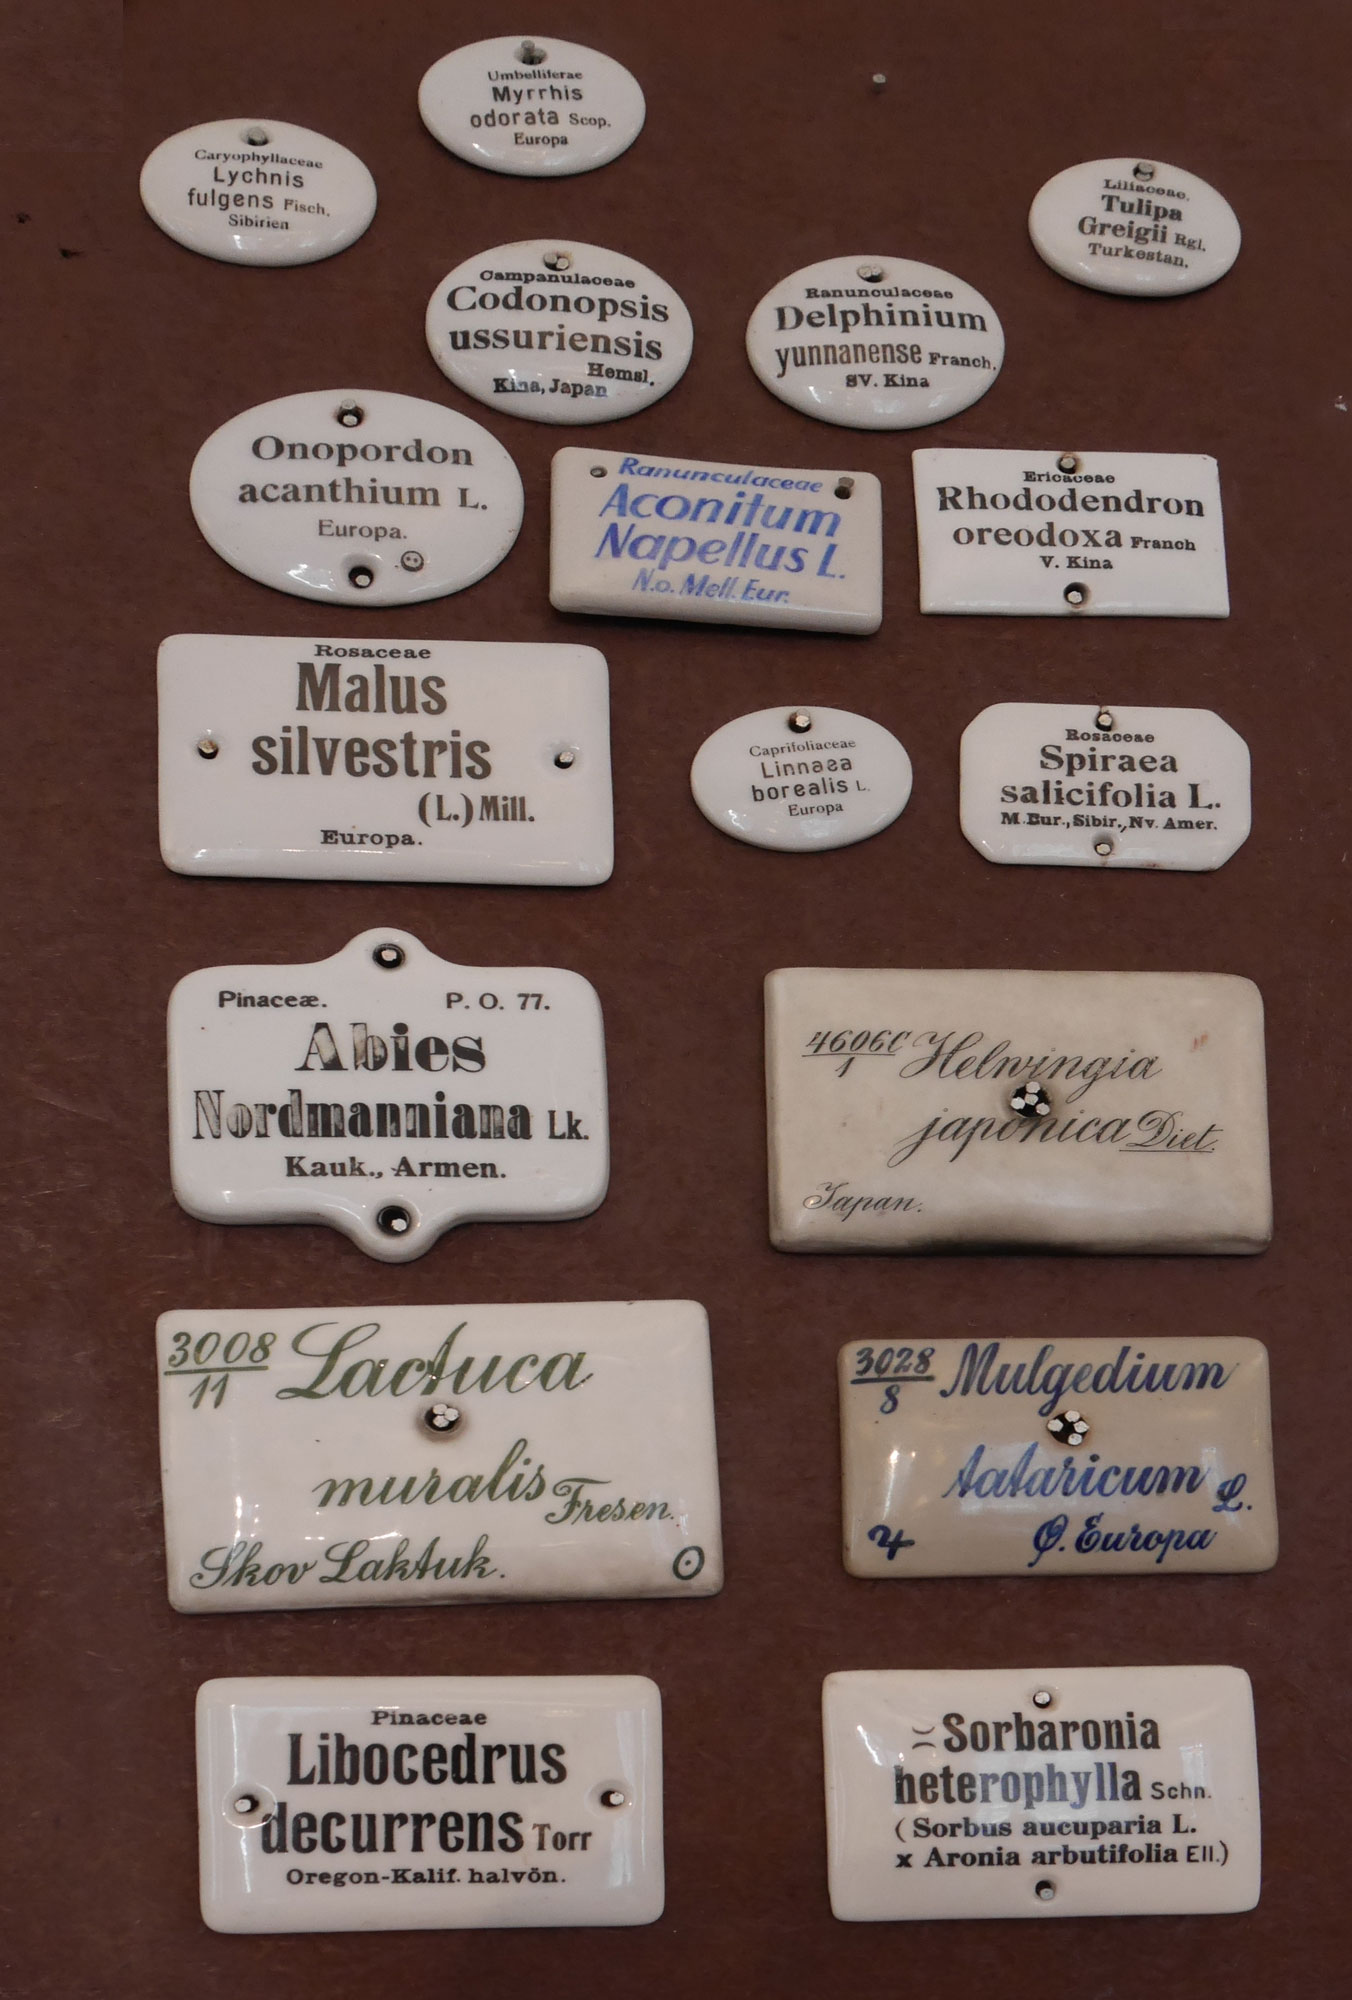 Umbelliferae
Myrrhis
odorata Scop.
Europa
Caryophyllaceae
Lychnis
fulgens Fisch.
Sibirien
Liliaceae.
Tulipa
Greigii Rgl.
Turkestan.
Campanulaceae
Codonopsis
ussuriensis
Hemsl.
Kina, Japan
Ranunculaceae
Delphinium
yunnanense Franch.
SV. Kina
Onopordon
acanthium L.
Europa.
Ranunculaceae
Aconitum
Napellus L.
N.o. Mell. Eur.
Ericaceae
Rhododendron
oreodoxa Franch
V. Kina
Rosaceae
Malus
silvestris
(L.) Mill.
Europa.
Caprifoliaceae
Linnaea
borealis L.
Europa
Rosaceae
Spiraea
salicifolia L.
M. Eur., Sibir., Nv. Amer.
Pinaceæ. P. O. 77.
Abies
Nordmanniana Lk.
Kauk., Armen.
4606C Helwingia
1
japonica Diet.
Japan.
3008 Lactuca
11
muralis Fresen.
Skov Laktuk. ☉
3028 Mulgedium
8
tataricum L.
♃ Ø. Europa
Pinaceae
Libocedrus
decurrens Torr
Oregon-Kalif. halvön.
Sorbaronia
heterophylla Schn.
(Sorbus aucuparia L.
x Aronia arbutifolia Ell.)